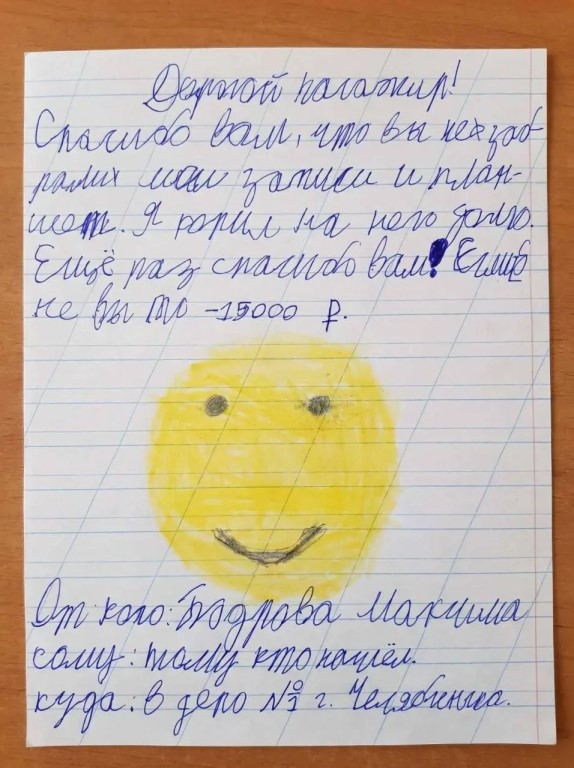 Дорогой пасажир!
Спасибо вам, что вы не заб
рали мои записи и план-
шет. Я копил на него долго.
Ещё раз спасибо вам! Еслиб
не вы то -15000 ₽.
От кого: Бодрова Максима
кому: тому кто нашёл.
куда: в депо №1 г. Челябинска.